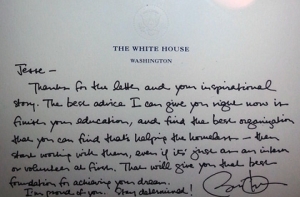 THE WHITE HOUSE
WASHINGTON
Jesse —
Thanks for the letter and your inspirational
story. The best advice I can give you right now is
finish your education, and find the best organization
that you can find that's helping the homeless — then
start working with them, even if it's just as an intern
or volunteer at first. That will give you that best
foundation for achieving your dream.
I'm proud of you. Stay determined!